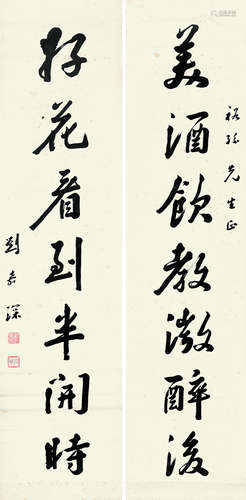 美酒飲教微醉後
先生正
好花看到半開時
劉嘉琛